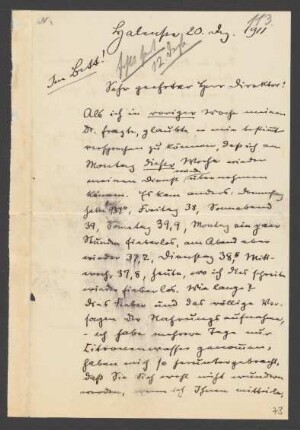 113
Halensee 20. Dez. 1911
Im Bett!
Sehr geehrter Herr Direktor!
Als ich in voriger Woche meinen
Dr. fragte, glaubte er mir bestimmt
versprechen zu können, daß ich am
Montag dieser Woche wieder
meinen Dienst würde übernehmen
können. Es kam anders. Donnerstag
39°, Freitag 38, Sonnabend
39, Sonntag 39,9, Montag ein paar
Stunden fieberlos, am Abend aber
wieder 37,2, Dienstag 38, Mitt-
woch, 37,8, heute, wo ich dies schreibe
wieder fieberlos. Wie lange?
Dies Fieber und das völlige Ver-
sagen der Nahrungsaufnahme,
- ich habe mehrere Tage nur
Zitronenwasser genommen,
haben mich so heruntergebracht,
daß Sie sich wohl nicht wundern
werden, wenn ich Ihnen mitteile,
78